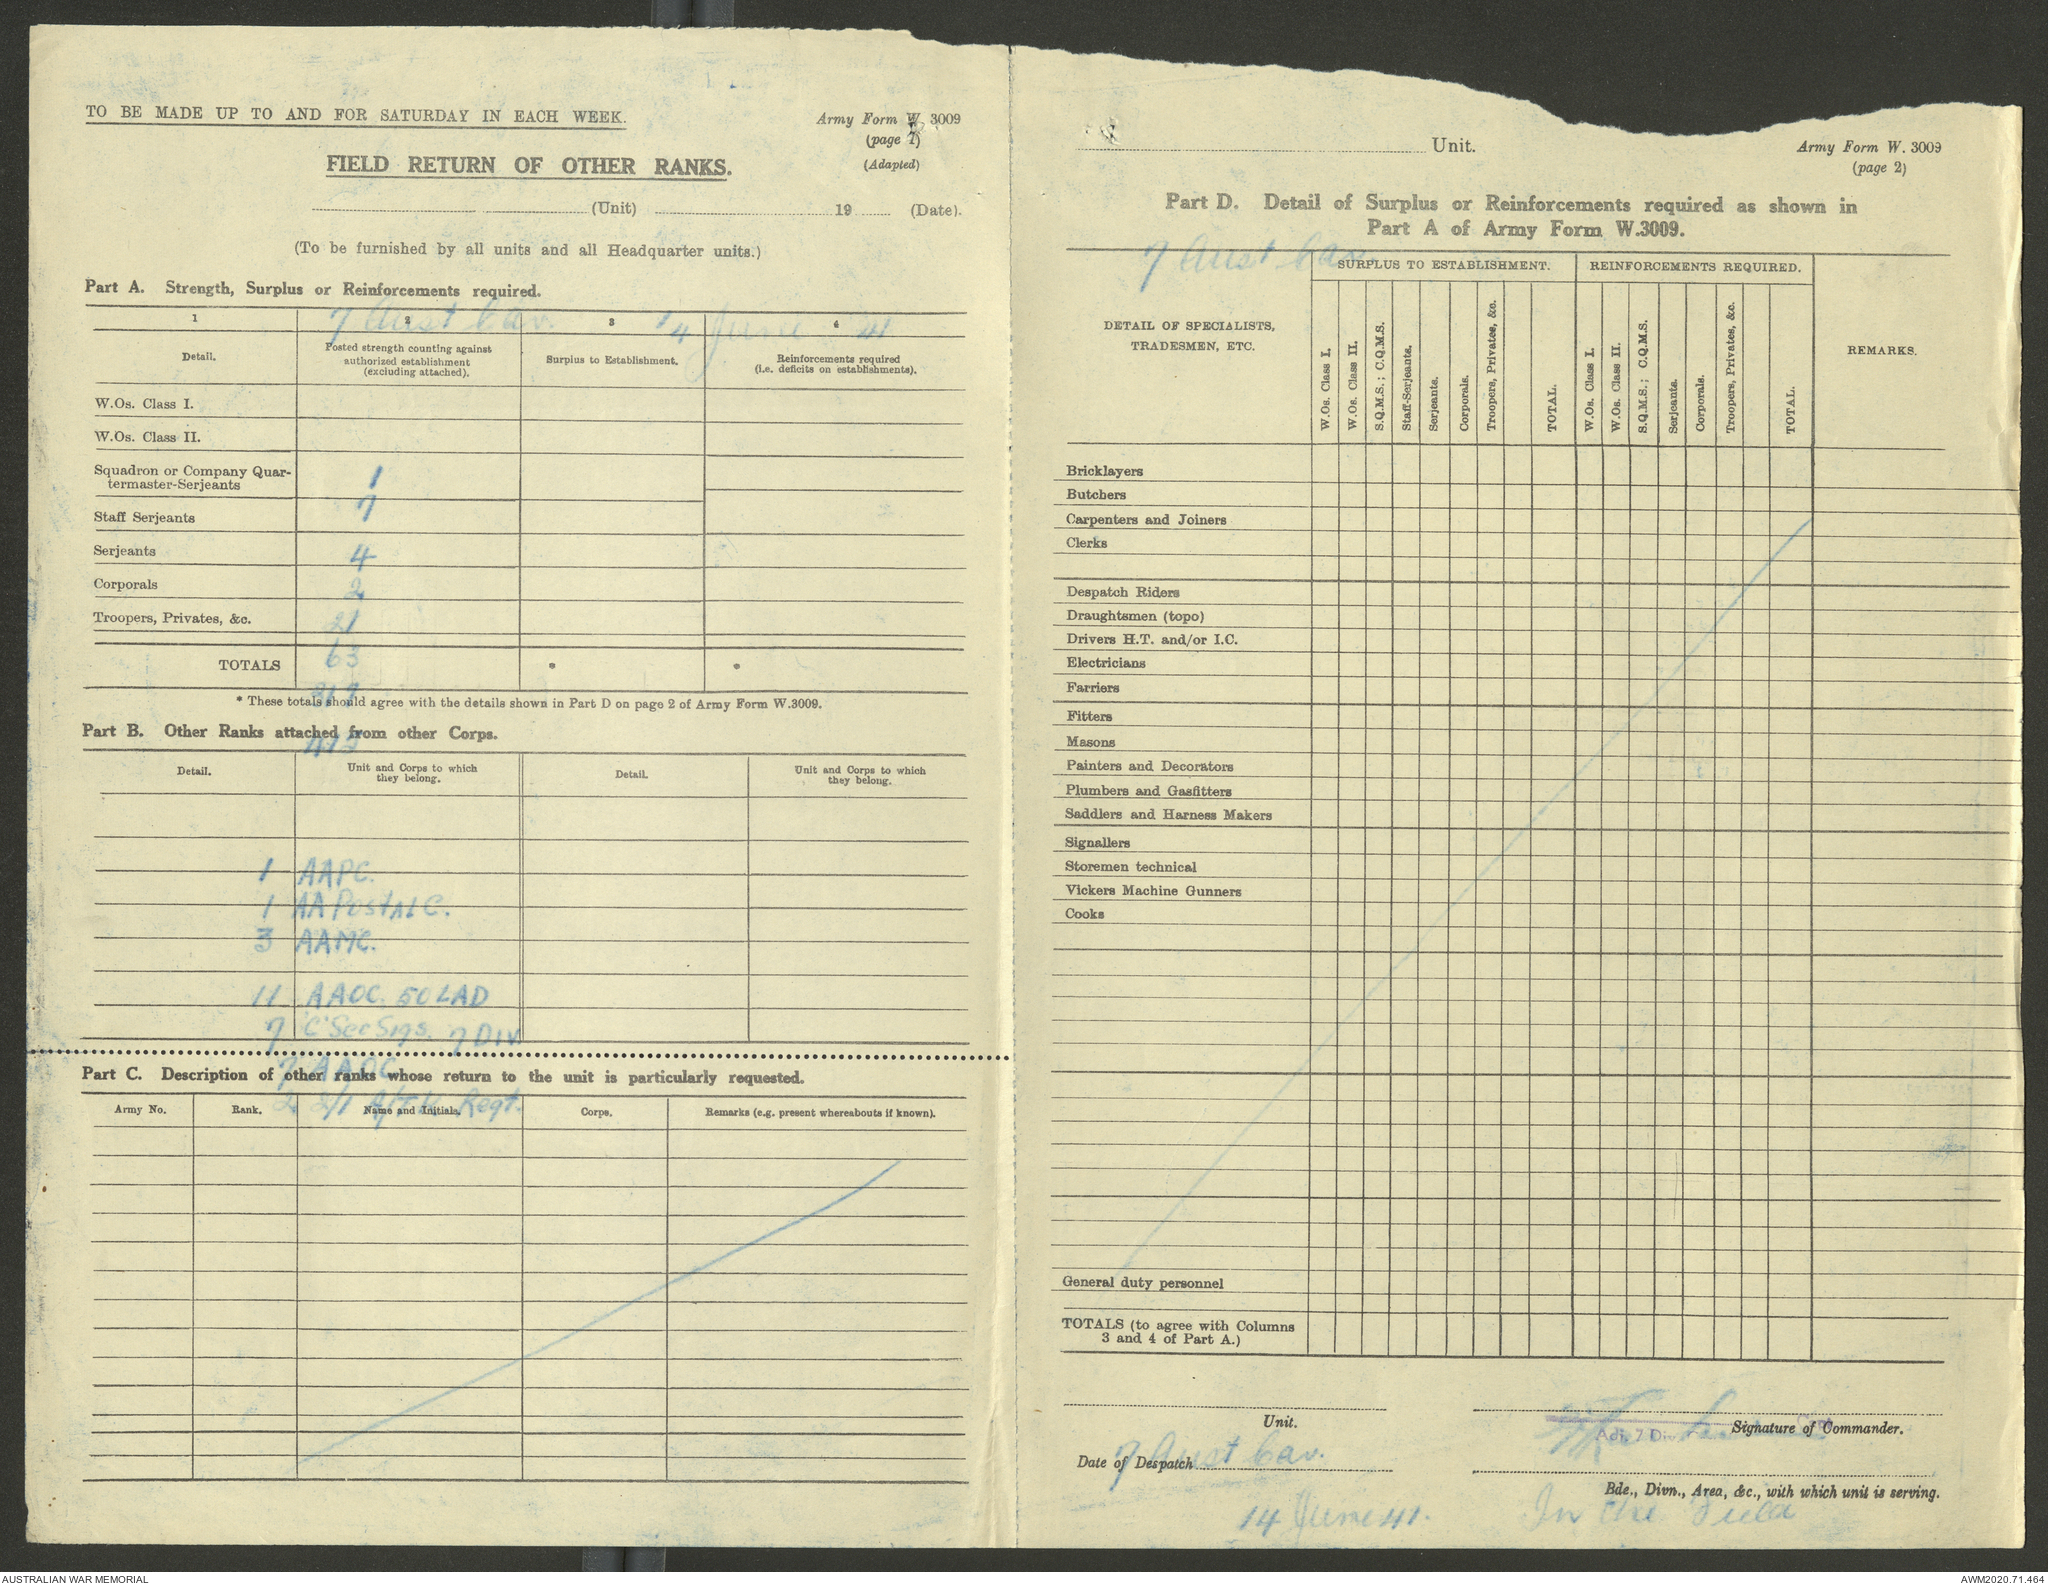 TO BE MADE UP TO AND FOR SATURDAY IN EACH WEEK.
Army Form W. 3009
(page 1)
(Adapted)
FIELD RETURN OF OTHER RANKS.
(Unit) 19 (Date).
(To be furnished by all units and all Headquarter units.)
Part A. Strength, Surplus or Reinforcements required.
7 Aust Cav. 14 June 41
1 2 3 4
Detail.
Posted strength counting against authorized establishment (excluding attached).
Surplus to Establishment.
Reinforcements required (i.e. deficits on establishments).
W.Os. Class I.
W.Os. Class II.
1
Squadron or Company Quar-
termaster-Serjeants
7
Staff Serjeants
4
Serjeants
2
Corporals
21
Troopers, Privates, &c.
63
TOTALS * *
317
* These totals should agree with the details shown in Part D on page 2 of Army Form W.3009.
Part B. Other Ranks attached from other Corps.
Detail.
Unit and Corps to which they belong.
Detail.
Unit and Corps to which they belong.
1 AAPC.
1 AA Postal C.
3 AAMC.
11 AAOC. 50 LAD
7 'C' Sec Sigs. 7 Div
7 AAOC
Part C. Description of other ranks whose return to the unit is particularly requested.
2 2/1 A/TK Regt.
Army No. Rank. Name and Initials. Corps. Remarks (e.g. present whereabouts if known).
Unit.
Army Form W. 3009
(page 2)
Part D. Detail of Surplus or Reinforcements required as shown in
Part A of Army Form W.3009.
7 Aust Cav.
DETAIL OF SPECIALISTS,
TRADESMEN, ETC.
SURPLUS TO ESTABLISHMENT.
W.Os. Class I.
W.Os. Class II.
S.Q.M.S.; C.Q.M.S.
Staff-Serjeants.
Serjeants.
Corporals.
Troopers, Privates, &c.
TOTAL.
REINFORCEMENTS REQUIRED.
W.Os. Class I.
W.Os. Class II.
S.Q.M.S.; C.Q.M.S.
Serjeants.
Corporals.
Troopers, Privates, &c.
TOTAL.
REMARKS.
Bricklayers
Butchers
Carpenters and Joiners
Clerks
Despatch Riders
Draughtsmen (topo)
Drivers H.T. and/or I.C.
Electricians
Farriers
Fitters
Masons
Painters and Decorators
Plumbers and Gasfitters
Saddlers and Harness Makers
Signallers
Storemen technical
Vickers Machine Gunners
Cooks
General duty personnel
TOTALS (to agree with Columns
3 and 4 of Part A.)
Unit.
Signature of Commander.
Adj. 7 Div
7 Aust Cav.
Date of Despatch
Bde., Divn., Area, &c., with which unit is serving.
14 June 41.
In the Field
AUSTRALIAN WAR MEMORIAL
AWM2020.71.464